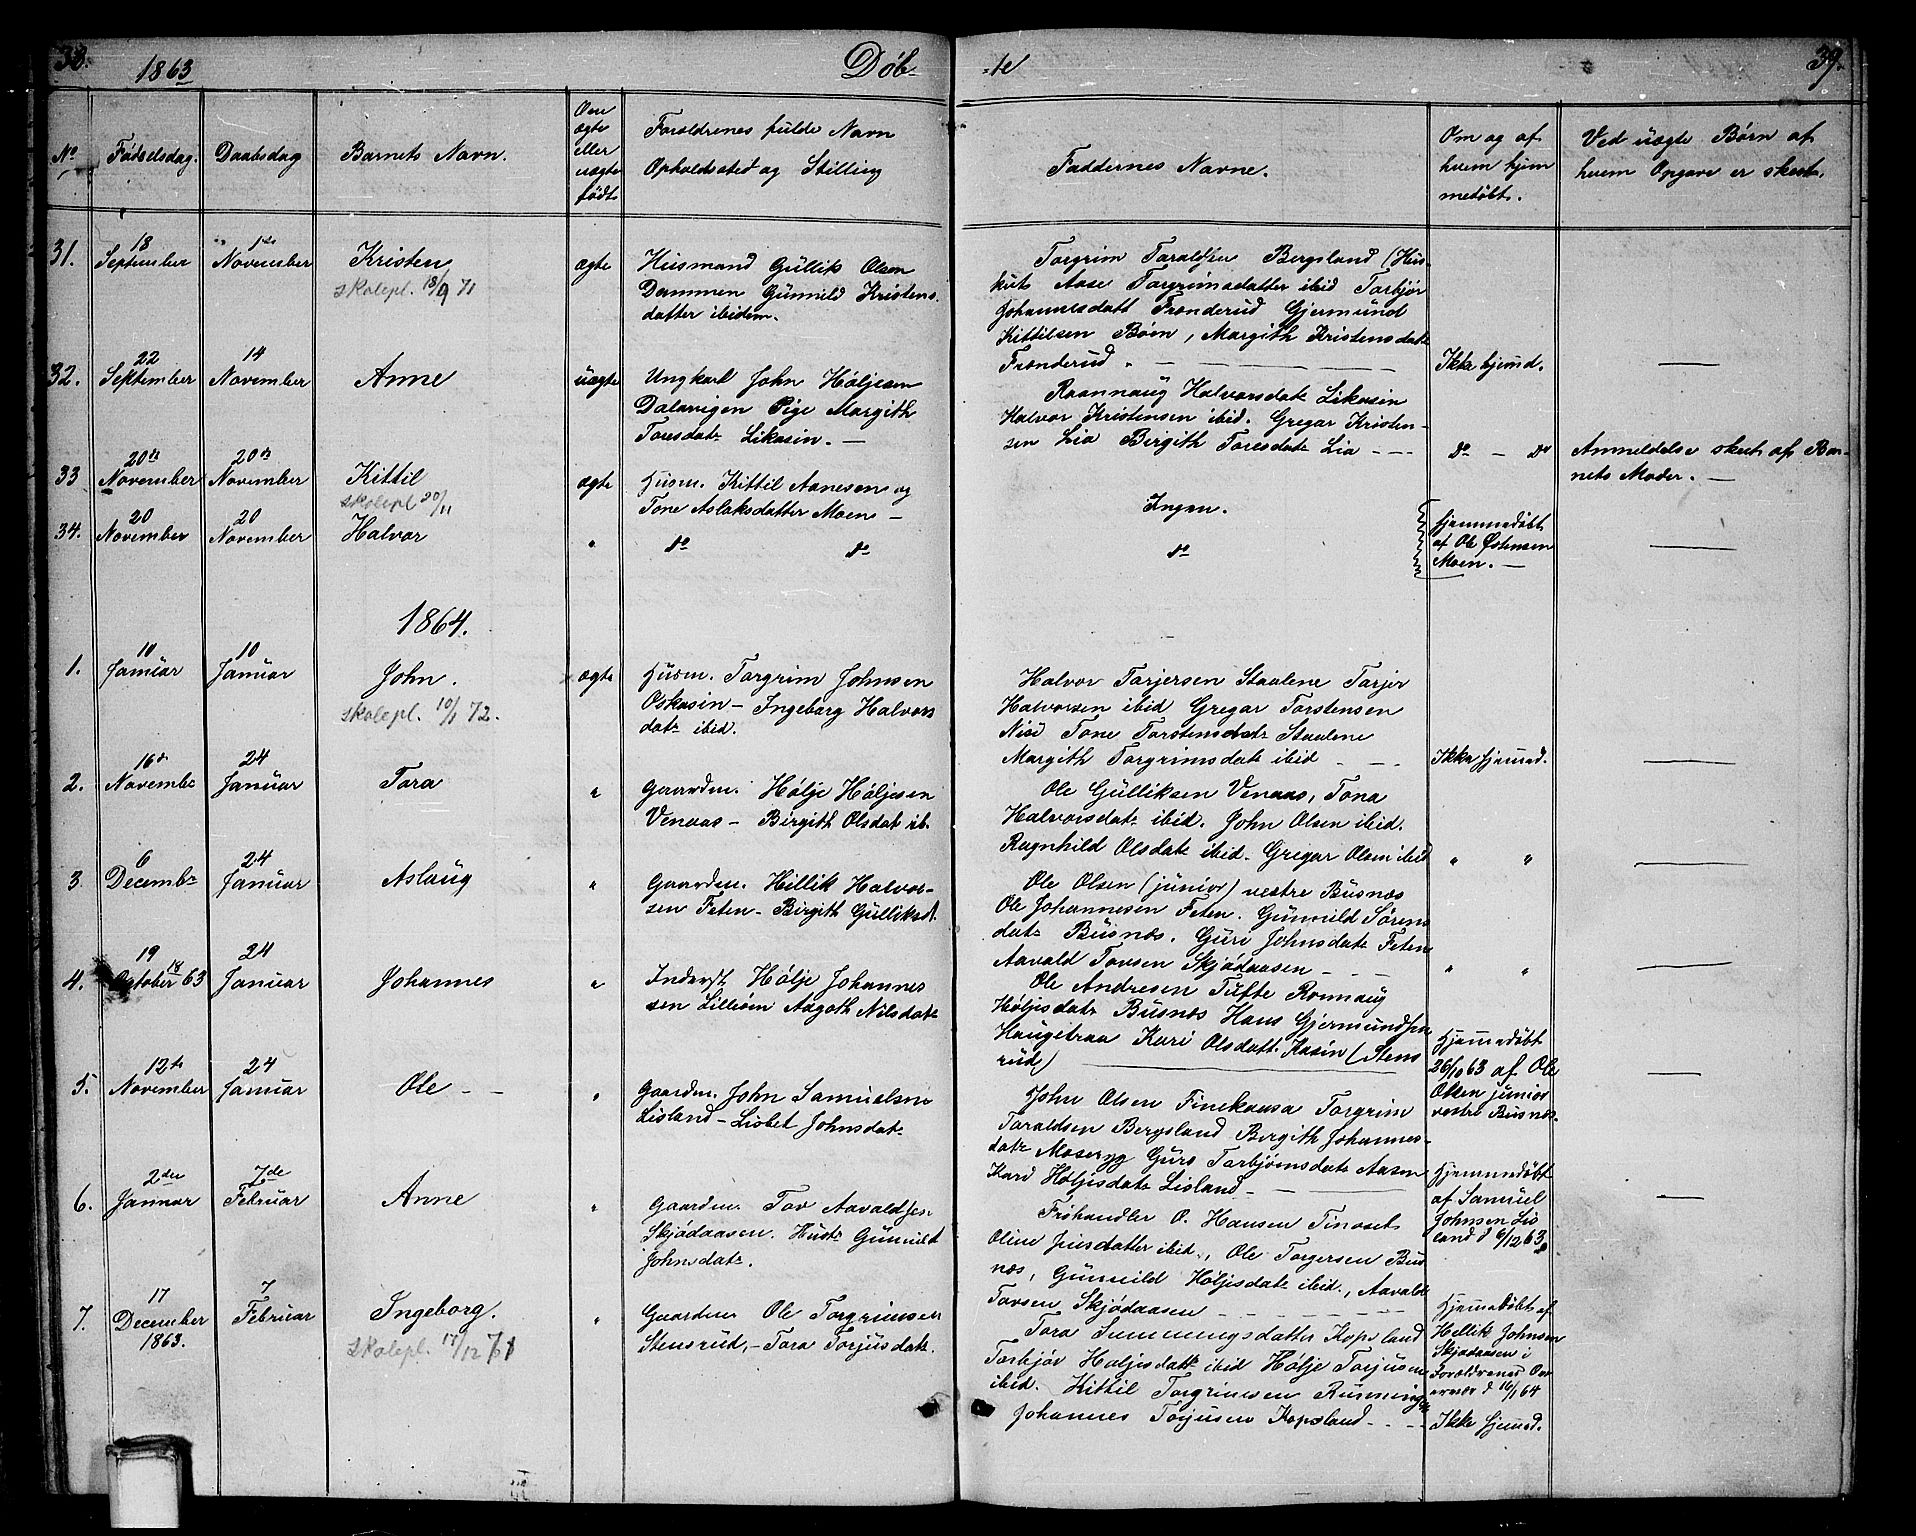 38.
1863
Døb-
-te
39.
No
Fødselsdag.
Daabsdag
Barnets Navn.
Om
ægte
eller
uægte
født
Forældrenes fulde Navn
Opholdssted og Stilling
Faddernes Navne.
Om og af
hvem hjem
medøbt.
Ved uægte Børn af
hvem Opgave er skeet.
31.
18
September
1ste
November
Kristen
skolepl. 18/9 71
ægte
Husmand Gullik Olsen
Dammen Gunnild Kristens
datter ibidem.
Torgrim Taraldsen Bergsland (Hus-
kut Aase Torgrimsdatter ibid Torbjør
Johannesdatt Frønderud Gjermund
Kittilsen Bøen, Margith Kristensdatr
Frønderud
Ikke hjemd.
32.
22
September
14
November
Anne
uægte
Ungkarl John Høljesen
Dalavigen Pige Margith
Toresdatr Likasin. —
Raannaug Halvorsdatr Likasin
Halvor Kristensen ibid. Gregar Kristen-
sen Lia Birgith Toresdatr Lia - - -
do - do
Anmeldelse skeet af Bar-
nets Moder. —
33
20de
November
20de
November
Kittil
skolepl 20/11
ægte
Husm. Kittil Aanesen og
Tone Aslaksdatter Moen —
Ingen.
34.
20
November
20
November
Halvor
"
do do
do
hjemmedøbt
af Ole Østensen
Moen. —
1864.
1.
10
Januar
10
Januar
John.
skolepl. 10/1 72.
ægte
Husm. Torgrim Johnsen
Oskasin - Ingeborg Halvors
datr ibid.
Halvor Tarjersen Staalene Tarjer
Halvorsen ibid Gregar Torstensen
Nisi Tone Torstensdatr Staalene
Margith Torgrimsdatr ibid - - -
Ikke hjemd.
2.
16de
Novembr
24
Januar
Tora
"
Gaardm. Hølje Høljesen
Venaas - Birgith Olsdat ib.
Ole Gulliksen Venaas, Tona
Halvorsdatr ibid. John Olsen ibid.
Ragnhild Olsdatr ibid. Gregar Olsen ibid
" "
3.
6
Decembr
24
Januar
Aslaug
"
Gaardm. Hellik Halvor-
sen Feten - Birgith Gulliksd.
Ole Olsen (junior) vestre Busnæs
Ole Johannesen Feten. Gunuild Sørens
datr Busnæs. Guri Johnsdatr Feten
Aavald Tovsen Skjødaasen - - -
" "
4.
19
October 18 63
24
Januar
Johannes
"
Inderst Hølje Johannes
sen Lilleøin Aagoth Nilsdatr
Ole Andresen Tufte Ronnaug
Høljisdatr Busnæs Hans Gjermundsen
Haugetraa Kari Olsdatt. Kasin (Stens
rud)
Hjemmedøbt
26/10 63 af Ole
Olsen junior
vestre Busnæs.
5.
12te
November
24
Januar
Ole - -
"
Gaardm. John Samuelsen
Lisland - Lisbet Johnsdatr
John Olsen Finekaasa Torgrim
Taraldsen Bergsland Birgith Johannes-
datr Moseryg Guro Tarbjørnsdatr Aasen
Kari Høljisdatr Lisland -
Hjemmedøbt
af Samuel
Johnsen Lis
land d 6/12 63
6.
2den
Januar
7de
Februar
Anne
"
Gaardm. Tov Aavaldsen
Skjødaasen. Hustr Gunuild
Johnsdatr.
Frihandler O. Hansen Tinoset
Oline Jensdatter ibid., Ole Torgersen Bus
næs, Gunuild Høljisdatr ibid., Aavald
Tovsen Skjødaasen - - - -
Hjemmedøbt af
Hellik Johnsen
Skjødaasen i
Forældrenes Ov
ervær d 16/1 64
7.
17
December
1863.
7
Februar
Ingeborg.
skolepl. 17/12 71
"
Gaardm Ole Torgrimsen
Stensrud, - Tora Torjusdatr.
Tora Summungsdatter Kopsland
Torbjør Høljisdatr ibid Hølje Torjusen
ibid. Kittil Torgrimsen Running
Johannes Torjusen Kopsland - - -
Ikke hjemd.